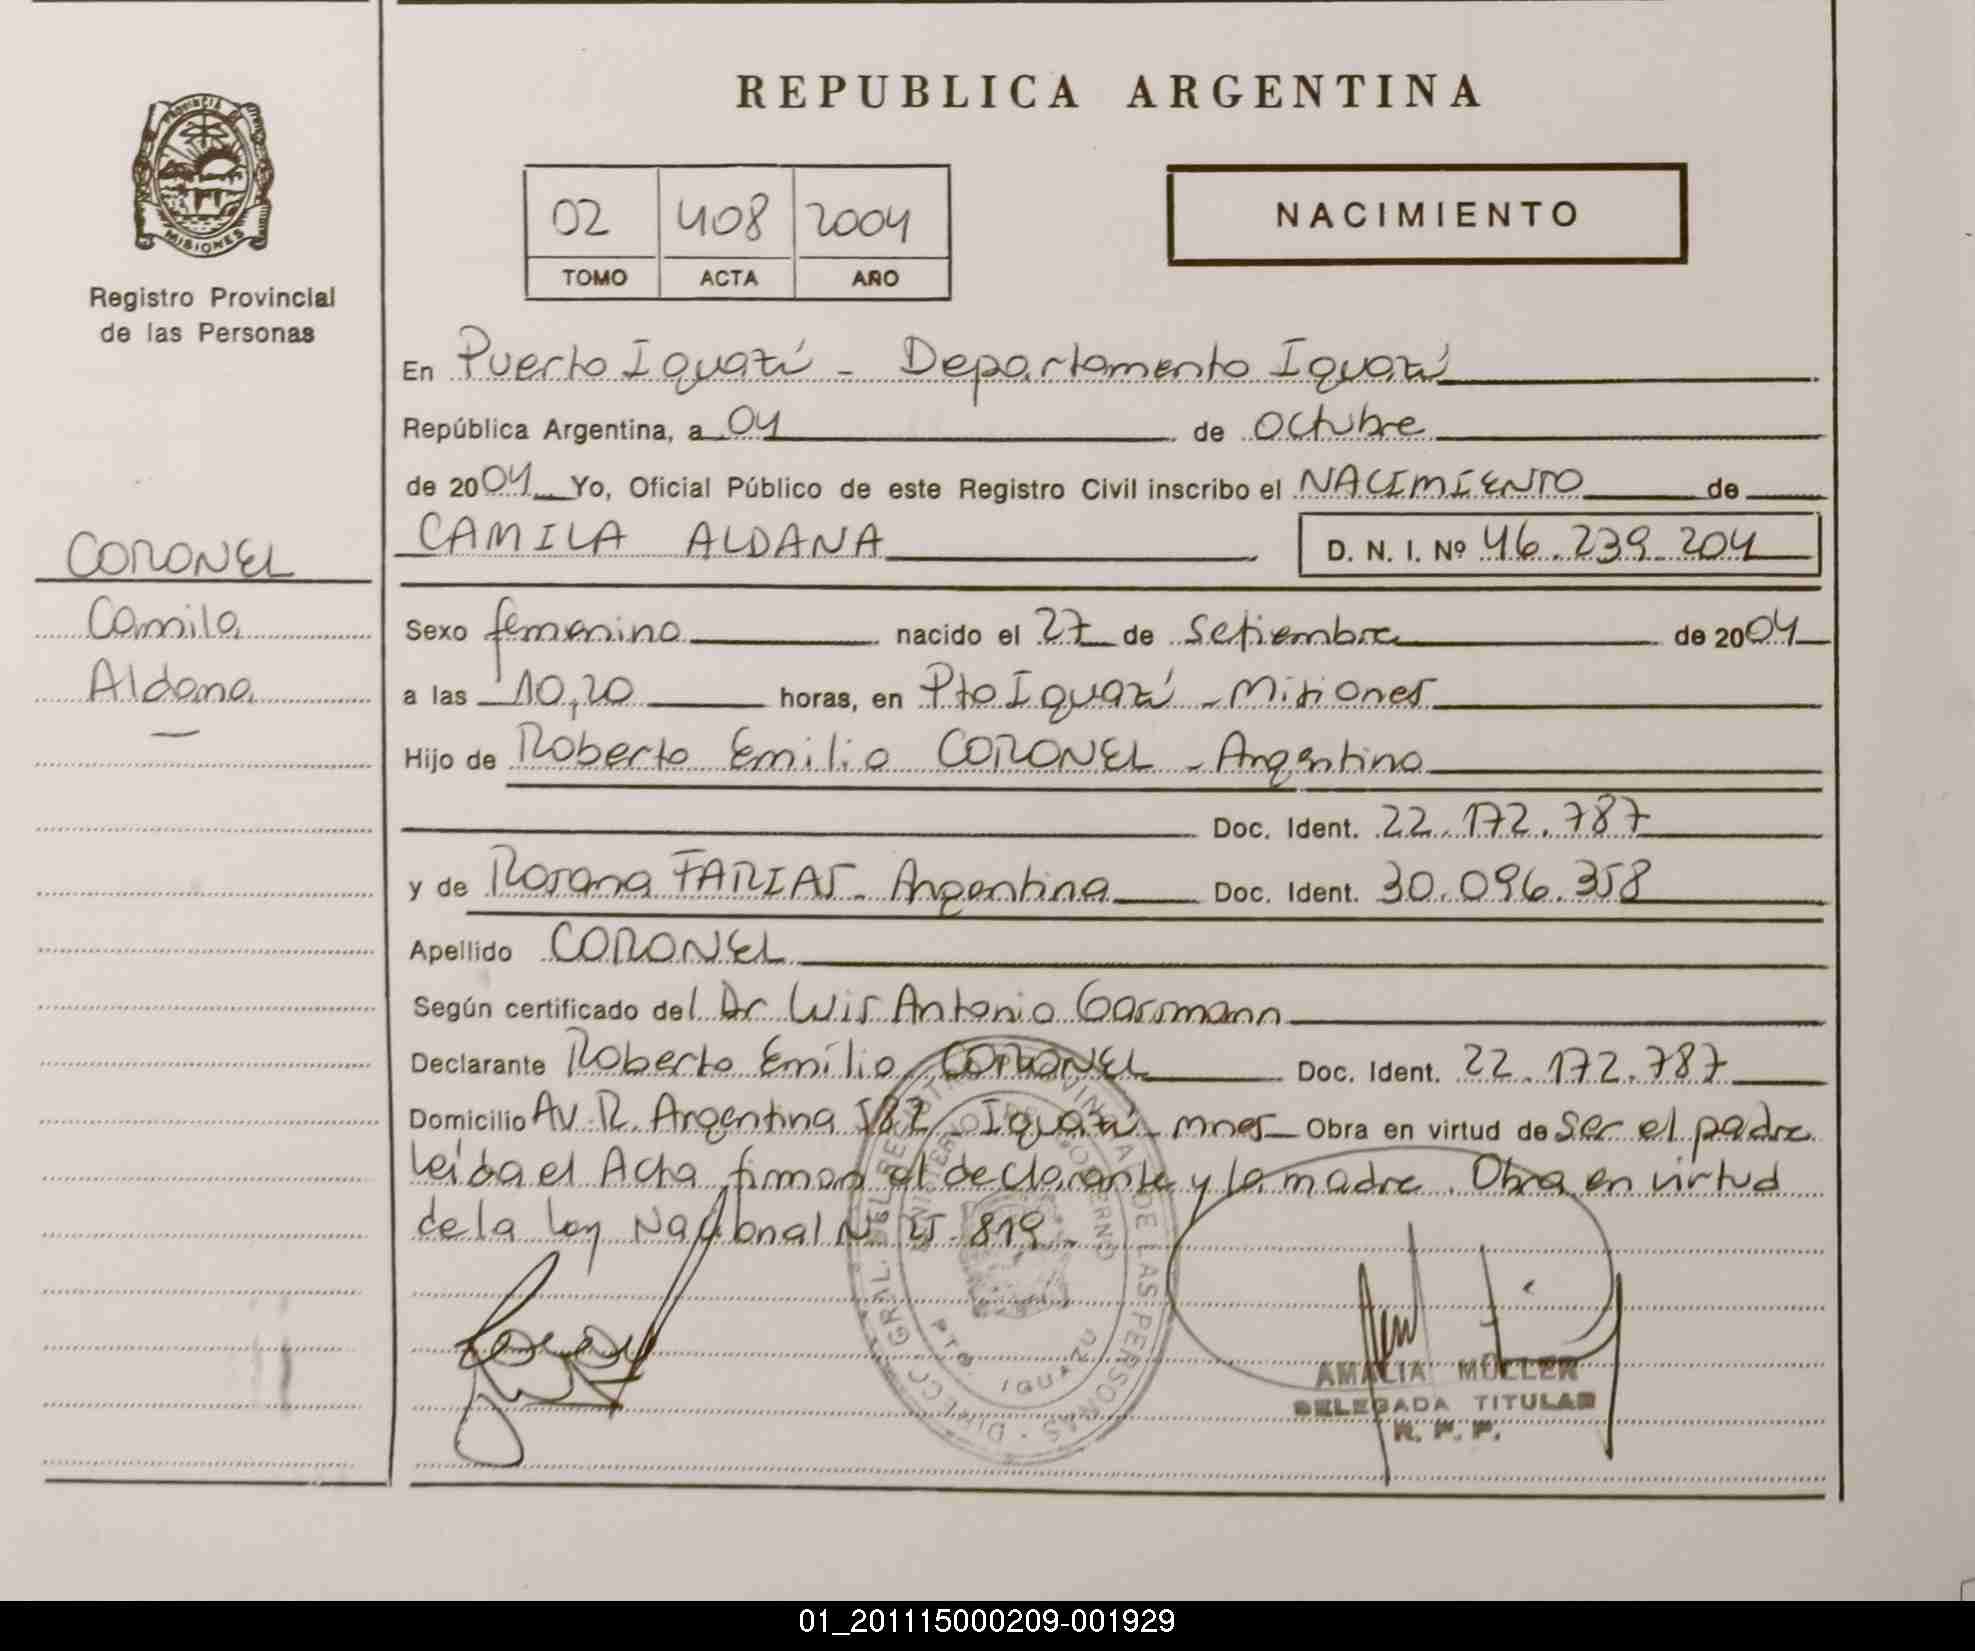 REPUBLICA ARGENTINA
PROVINCIA
MISIONES
Registro Provincial
de las Personas
02 408 2004
TOMO ACTA AÑO
NACIMIENTO
En Puerto Iguazú - Departamento Iguazú
República Argentina, a 04 de Octubre
de 2004 Yo, Oficial Público de este Registro Civil inscribo el NACIMIENTO de
CAMILA ALDANA D. N. I. Nº 46.239.204
CORONEL
Camila
Aldana
Sexo femenino nacido el 27 de Setiembre de 2004
a las 10,20 horas, en Pto Iguazú - Misiones
Hijo de Roberto Emilio CORONEL - Argentino
Doc. Ident. 22.172.787
y de Rosana FARIAS - Argentina Doc. Ident. 30.096.358
Apellido CORONEL
Según certificado del Dr Luis Antonio Garsmann
Declarante Roberto Emilio CORONEL Doc. Ident. 22.172.787
Domicilio Av. R. Argentina 582 - Iguazú - mnes Obra en virtud de ser el padre
leída el Acta firman el declarante y la madre. Obra en virtud
de la ley Nacional N 25.819 -
DIRECC. GRAL. DEL REGISTRO PROVINCIAL DE LAS PERSONAS
MINISTERIO DE GOBIERNO
PTO. IGUAZU
AMALIA MÜLLER
DELEGADA TITULAR
R. P. P.
01_201115000209-001929